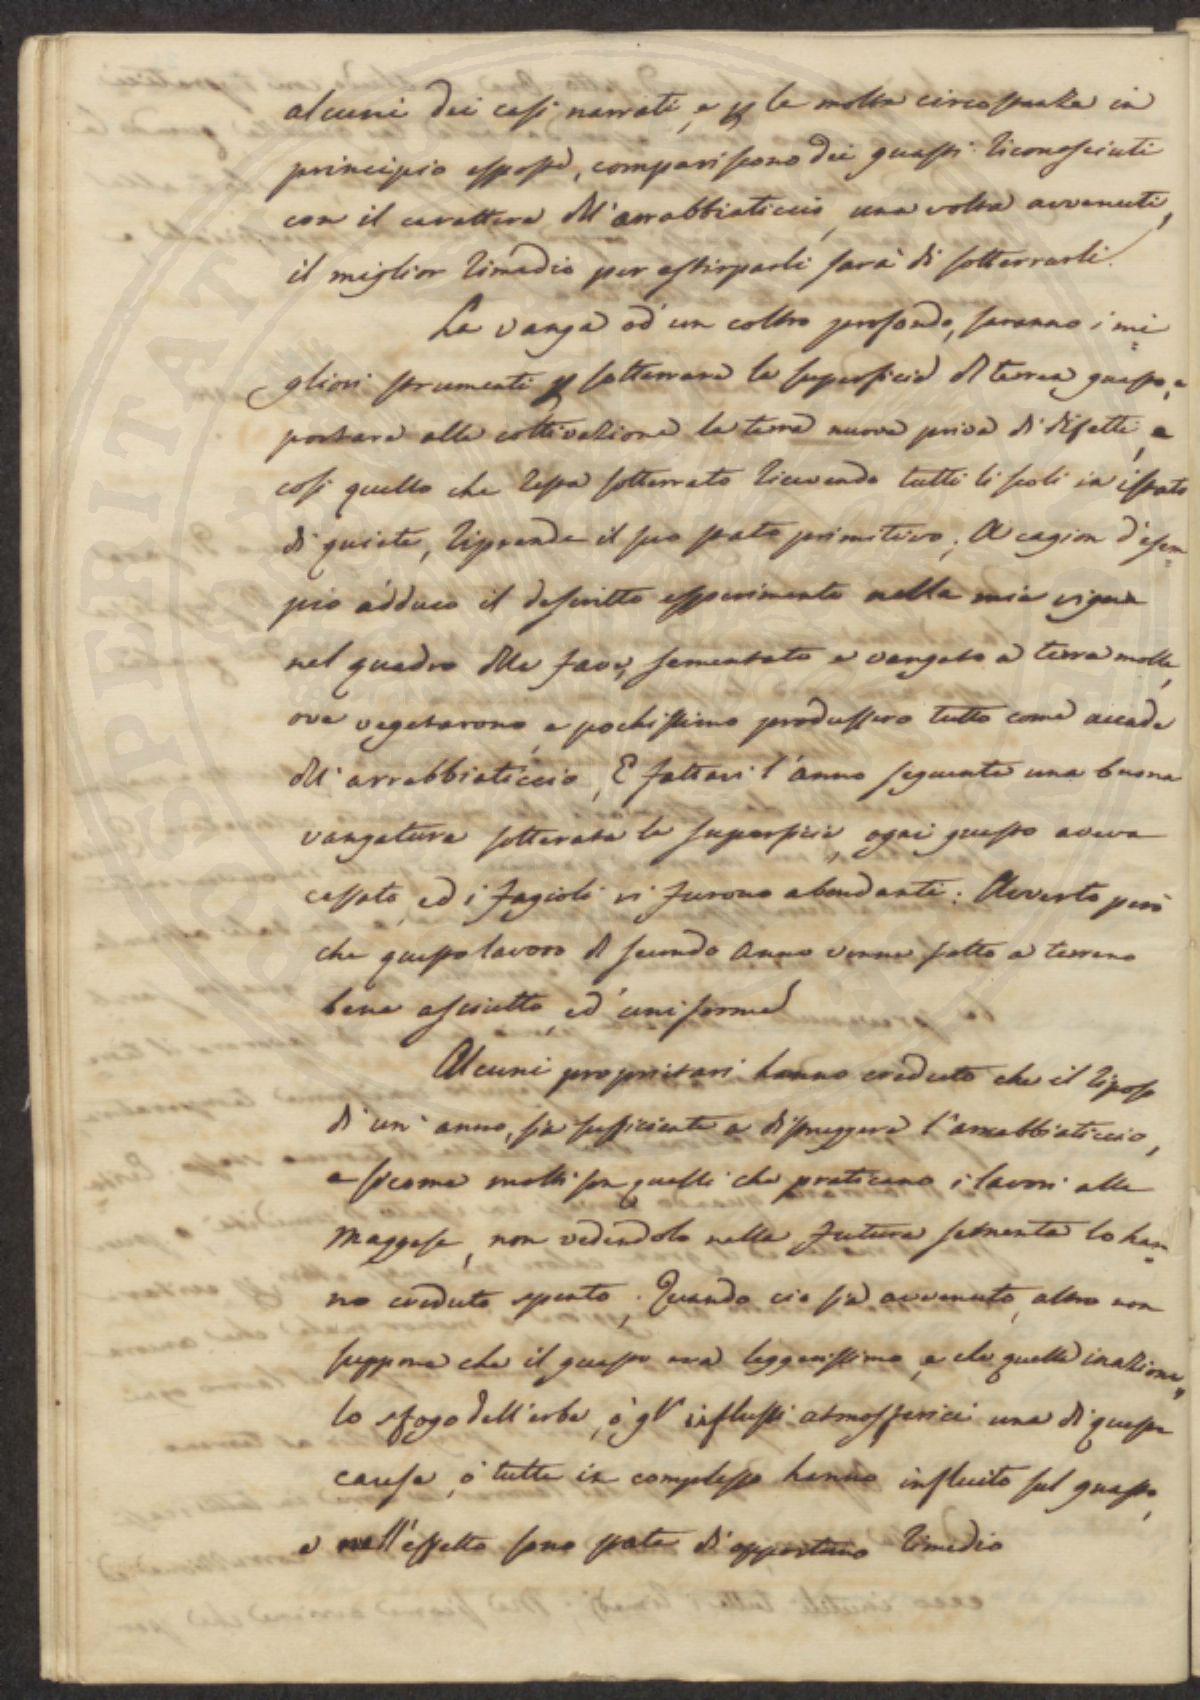 alcuni dei casi narrati, e p le molte circostanze in
principio esposte, compariscono dei guasti riconosciuti
con il carattere dell'arrabbiaticcio, una volta avvenuti,
il miglior rimedio per estirparli sarà di sotterrarli.
La vanga od un coltro profondo, saranno i mi=
gliori strumenti p sotterrare la superficie di terra guasta, e
portare alla coltivazione la terra nuova priva di difetti, e
così quello che resta sotterrato ricevendo tutti li scoli in istato
di quiete, riprende il suo stato primitivo; A cagion d'esem=
pio adduco il descritto esperimento nella mia vigna
nel quadro delle fave, sementato e vangato a terra molle,
ove vegetarono, e pochissimo produssero tutto come accade
dell'arrabbiaticcio, E fattavi l'anno seguente una buona
vangatura sotterata la superficie, ogni guasto aveva
cessato, ed i fagioli vi furono abondanti: Avverto però
che questo lavoro di secondo anno venne fatto a terreno
bene asciutto, ed uniforme
Alcuni proprietari hanno creduto che il riposo
di un' anno, sia sufficiente a distruggere l'arrabbiaticcio,
e siccome molti son quelli che praticano i lavori alle
Maggese, non vedendolo nella futura sementa lo han=
no creduto spento; Quando ciò sia avvenuto, altro non
suppone che il guasto era leggerissimo, e che quella inazione,
lo sfogo dell'erbe, o gl' influssi atmosferici una di queste
cause, o tutte in complesso hanno influito sul guasto,
e nell'effetto sono state di opportuno rimedio